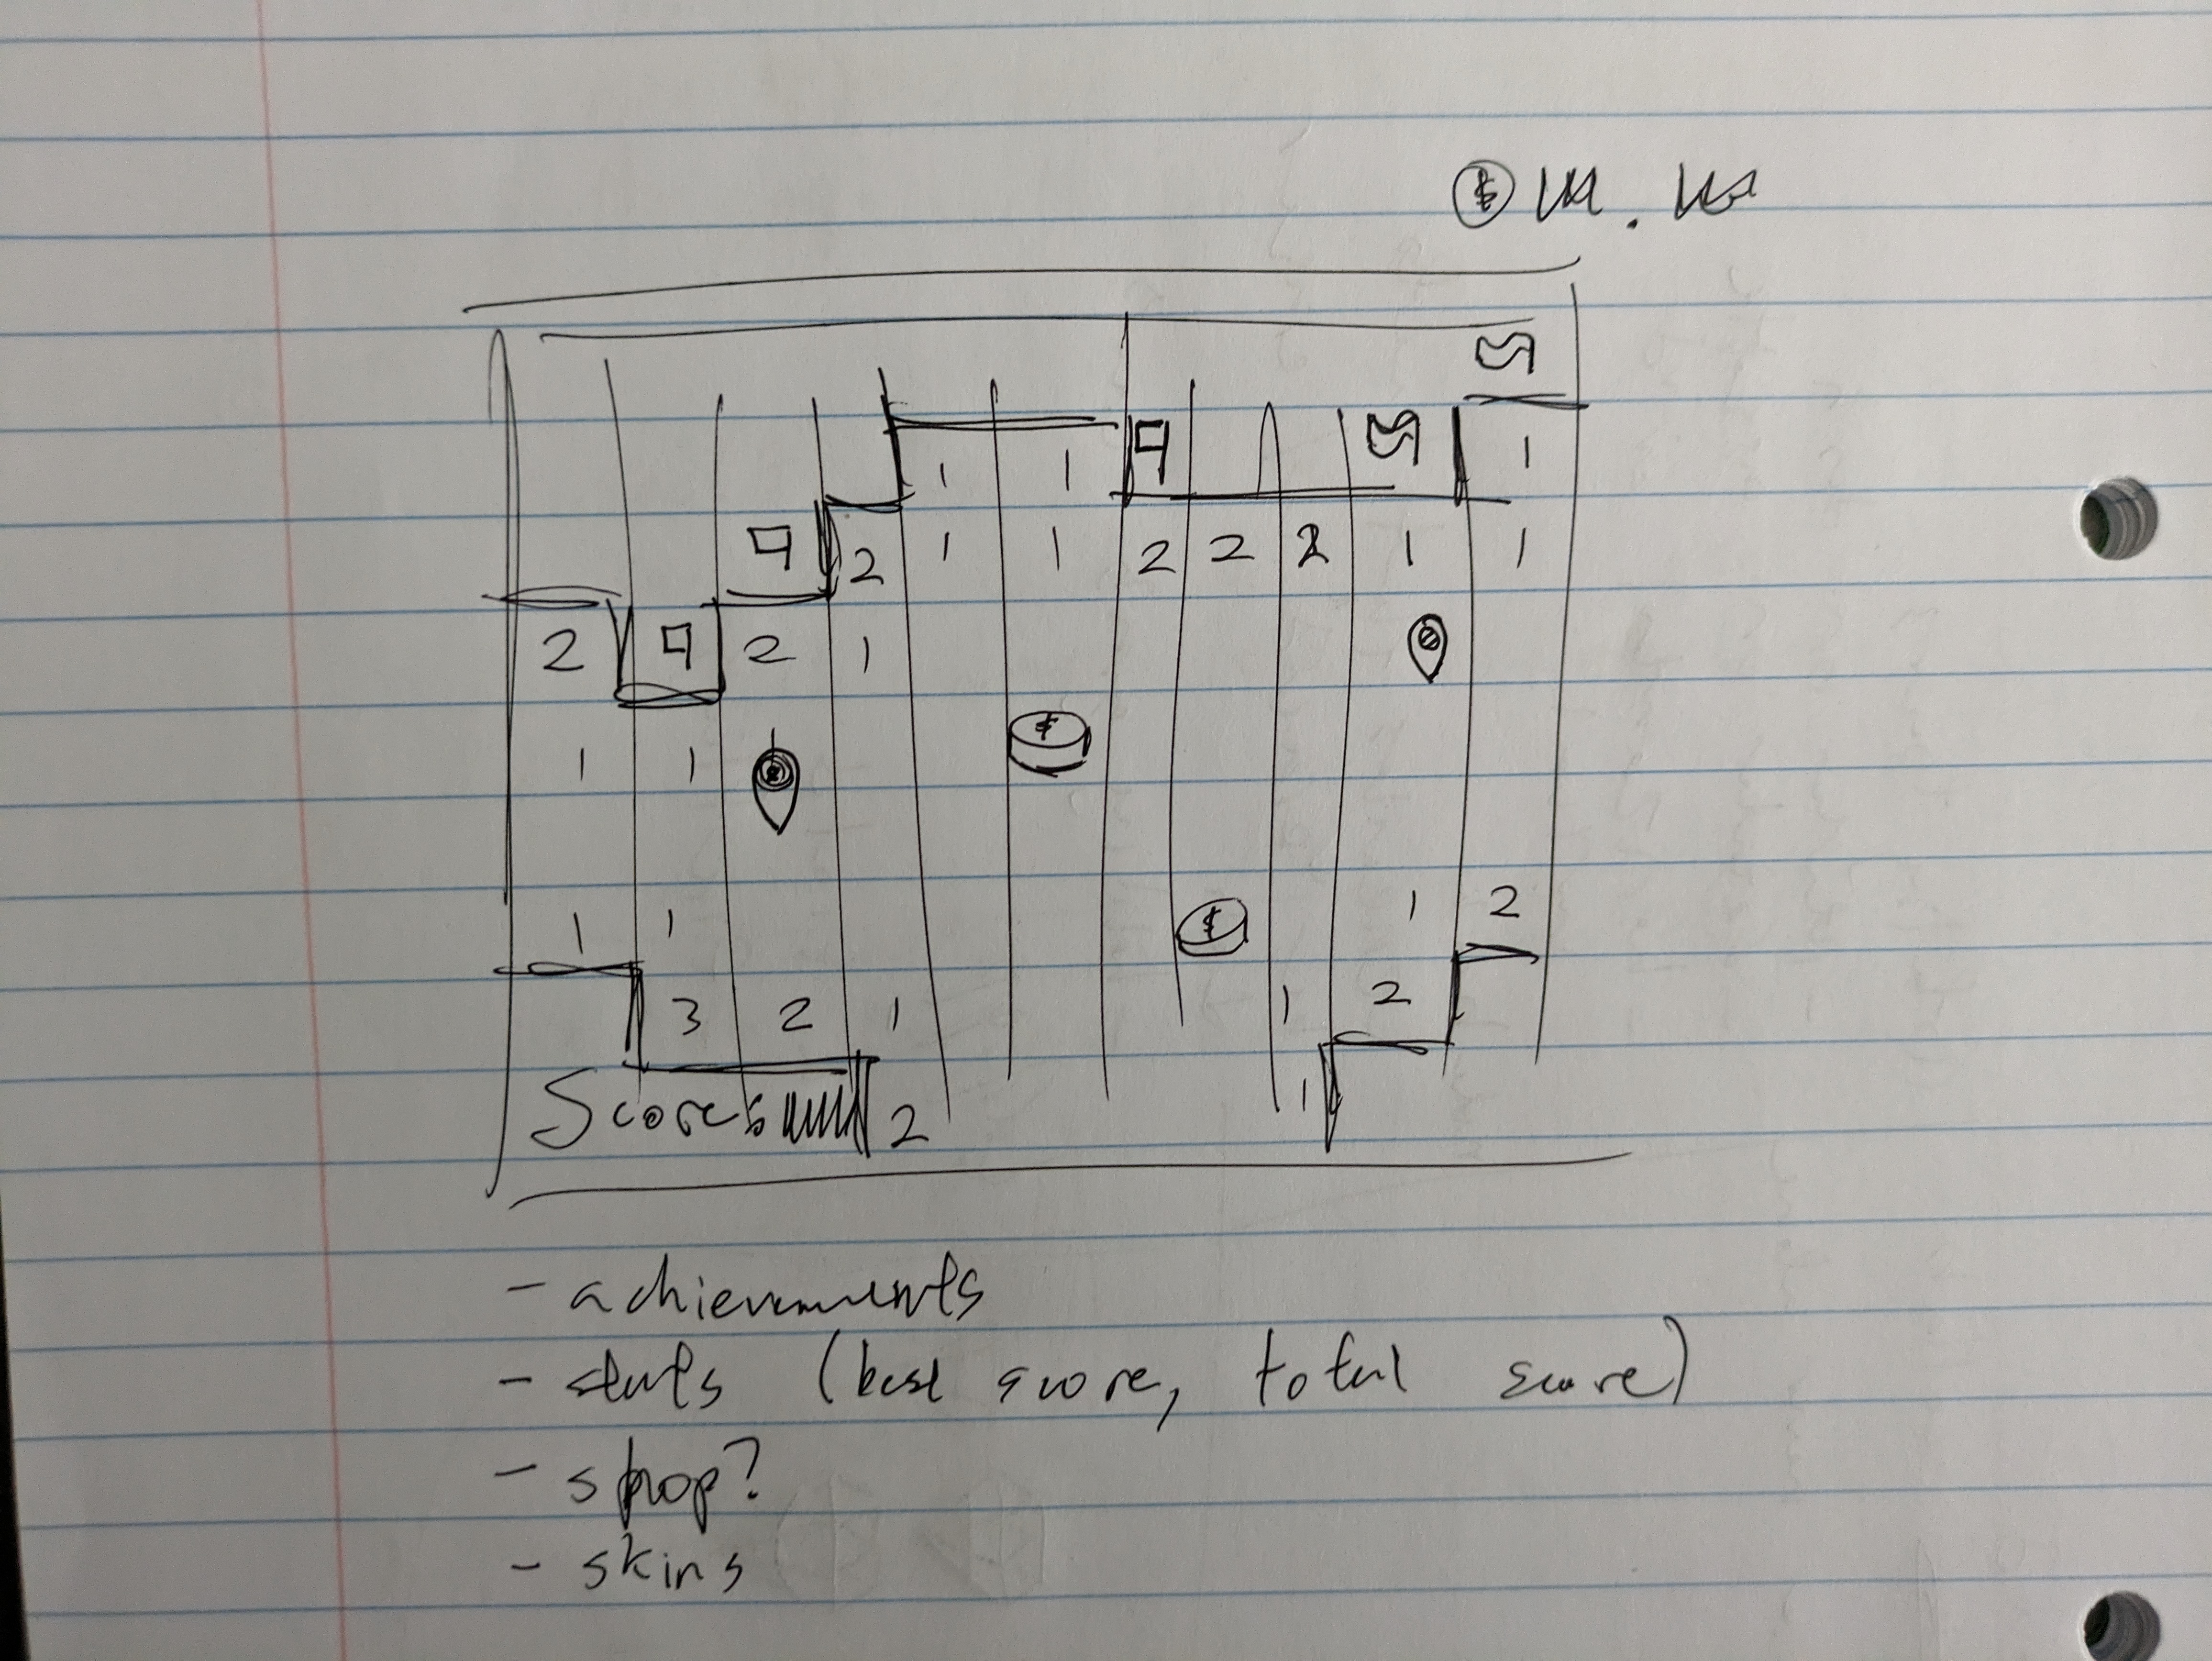 $
1 1
2 1 1 2 2 2 1 1
1
2 2 1
$
1 1
1 1
$
1 2
3 2 1
1 2
Score:
2
1
- achievements
- stats (best score, total score)
- shop?
- skins